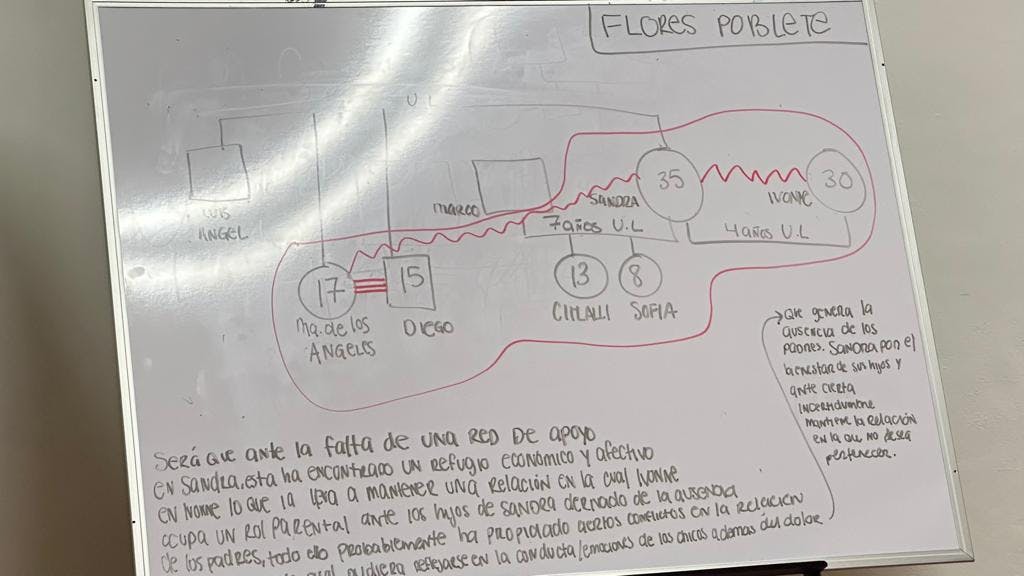 FLORES POBLETE
U.L
LUIS
ANGEL
MARCO
SANDRA
35
IVONNE
30
7 años U.L
4 años U.L
17
15
13
8
Ma. de los
ANGELES
DIEGO
CITLALI
SOFIA
SERÁ QUE ANTE LA FALTA DE UNA RED DE APOYO
EN SANDRA, ESTA HA ENCONTRADO UN REFUGIO ECONÓMICO Y AFECTIVO
EN IVONNE LO QUE LA LLEVA A MANTENER UNA RELACIÓN EN LA CUAL IVONNE
OCUPA UN ROL PARENTAL ANTE LOS HIJOS DE SANDRA DERIVADO DE LA AUSENCIA
DE LOS PADRES, TODO ELLO PROBABLEMENTE HA PROPICIADO CIERTOS CONFLICTOS EN LA RELACIÓN
PUDIERA REFLEJARSE EN LA CONDUCTA/EMOCIONES DE LOS CHICOS ADEMAS DEL DOLOR
QUE GENERA LA
AUSENCIA DE LOS
PADRES. SANDRA POR EL
BIENESTAR DE SUS HIJOS Y
ANTE CIERTA
INCERTIDUMBRE
MANTIENE LA RELACIÓN
EN LA QUE NO DESEA
PERTENECER.